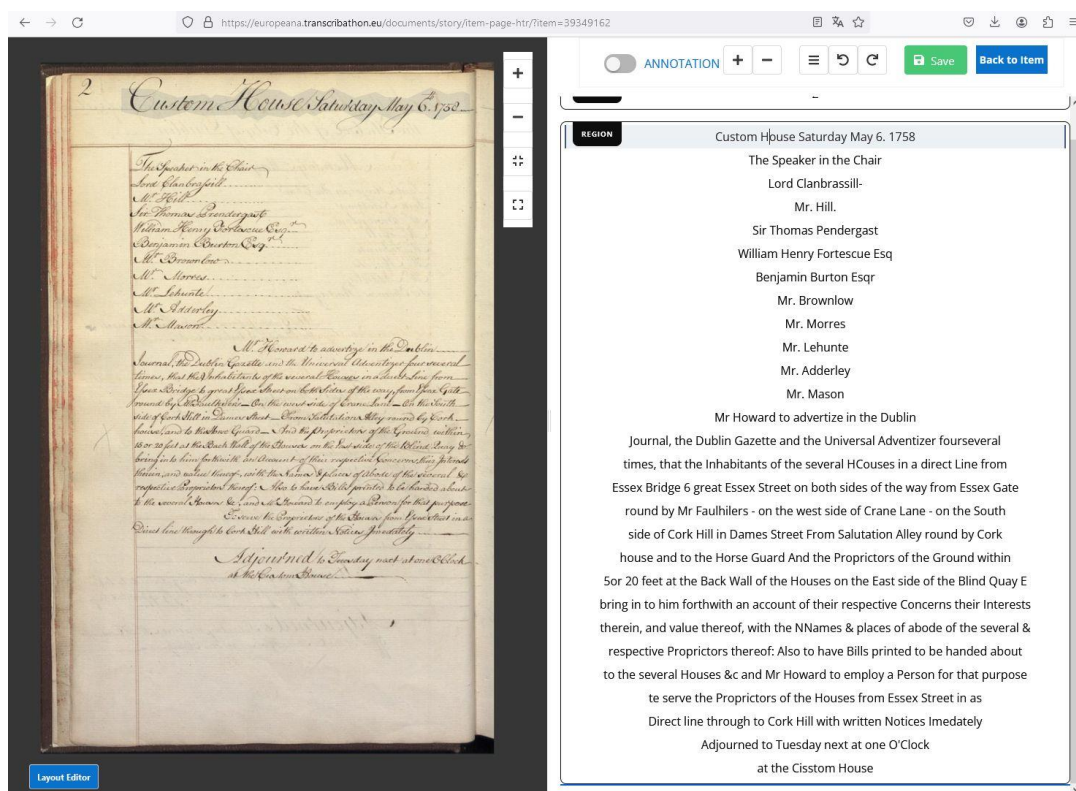 https://europeana.transcribathon.eu/documents/story/item-page-htr/?item=39349162
2
Custom House Saturday May 6th. 1758
The Speaker in the Chair
Lord Clanbrassill
Mr. Hill
Sir Thomas Prendergast
William Henry Fortescue Esqr.
Benjamin Burton Esqr.
Mr. Brownlow
Mr. Morres
Mr. Lehunte
Mr. Adderley
Mr. Mason
Mr. Howard to advertize in the Dublin
Journal, the Dublin Gazette and the Universal Advertizer four several
times, that the Inhabitants of the several Houses in a direct Line from
Essex Bridge to great Essex Street on both Sides of the way, from Essex Gate
round by Mr. Faulkners - On the west side of Crane Lane - On the South
side of Cork Hill in Dames Street - From Salutation Alley round by Cork
house, and to the Horse Guard - And the Proprietors of the Ground within
15 or 20 feet at the Back Wall of the Houses on the East side of the Blind Quay &
bring in to him forthwith an Account of their respective Concerns their Interests
therein, and value thereof, with the Names & places of abode of the several &
respective Proprietors thereof; Also to have Bills printed to be handed about
to the several Houses &c. and Mr. Howard to employ a Person for that purpose
To serve the Proprietors of the Houses from Essex Street in a
Direct line through to Cork Hill with written Notices Imediately
Adjourned to Tuesday next at one O'Clock
at the Custom House
Layout Editor
ANNOTATION
Save
Back to Item
REGION
Custom House Saturday May 6. 1758
The Speaker in the Chair
Lord Clanbrassill-
Mr. Hill.
Sir Thomas Pendergast
William Henry Fortescue Esq
Benjamin Burton Esqr
Mr. Brownlow
Mr. Morres
Mr. Lehunte
Mr. Adderley
Mr. Mason
Mr Howard to advertize in the Dublin
Journal, the Dublin Gazette and the Universal Adventizer fourseveral
times, that the Inhabitants of the several HCouses in a direct Line from
Essex Bridge 6 great Essex Street on both sides of the way from Essex Gate
round by Mr Faulhilers - on the west side of Crane Lane - on the South
side of Cork Hill in Dames Street From Salutation Alley round by Cork
house and to the Horse Guard And the Proprictors of the Ground within
5or 20 feet at the Back Wall of the Houses on the East side of the Blind Quay E
bring in to him forthwith an account of their respective Concerns their Interests
therein, and value thereof, with the NNames & places of abode of the several &
respective Proprictors thereof: Also to have Bills printed to be handed about
to the several Houses &c and Mr Howard to employ a Person for that purpose
te serve the Proprictors of the Houses from Essex Street in as
Direct line through to Cork Hill with written Notices Imedately
Adjourned to Tuesday next at one O'Clock
at the Cisstom House